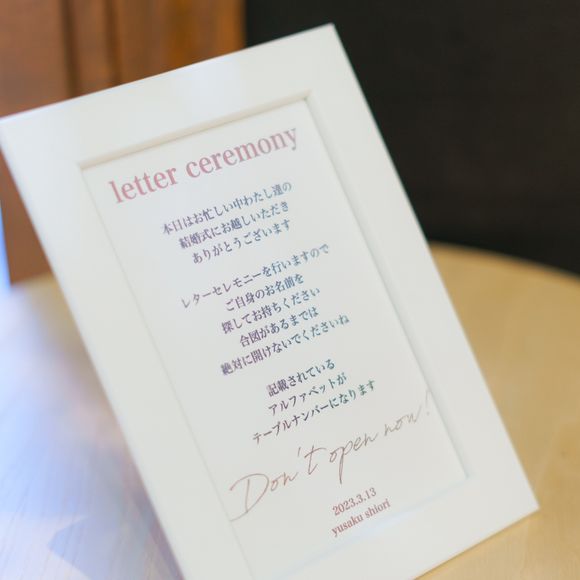 letter ceremony
本日はお忙しい中わたし達の
結婚式にお越しいただき
ありがとうございます
レターセレモニーを行いますので
ご自身のお名前を
探してお持ちください
合図があるまでは
絶対に開けないでくださいね
記載されている
アルファベットが
テーブルナンバーになります
Don't open now!
2023.3.13
yusaku shiori